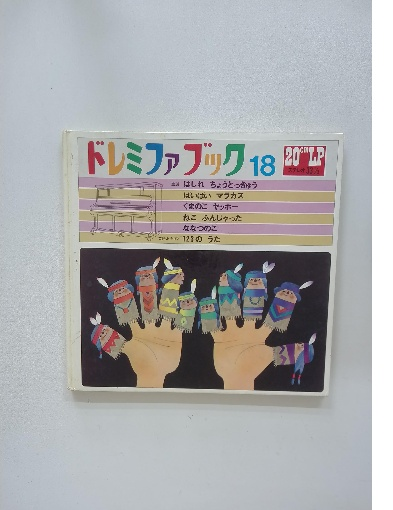 ドレミファブック18
20cm LP
ステレオ33⅓
はしれ ちょうとっきゅう
はいはい マラカス
くまのこ ヤッホー
ねこ ふんじゃった
ななつのこ
123の うた